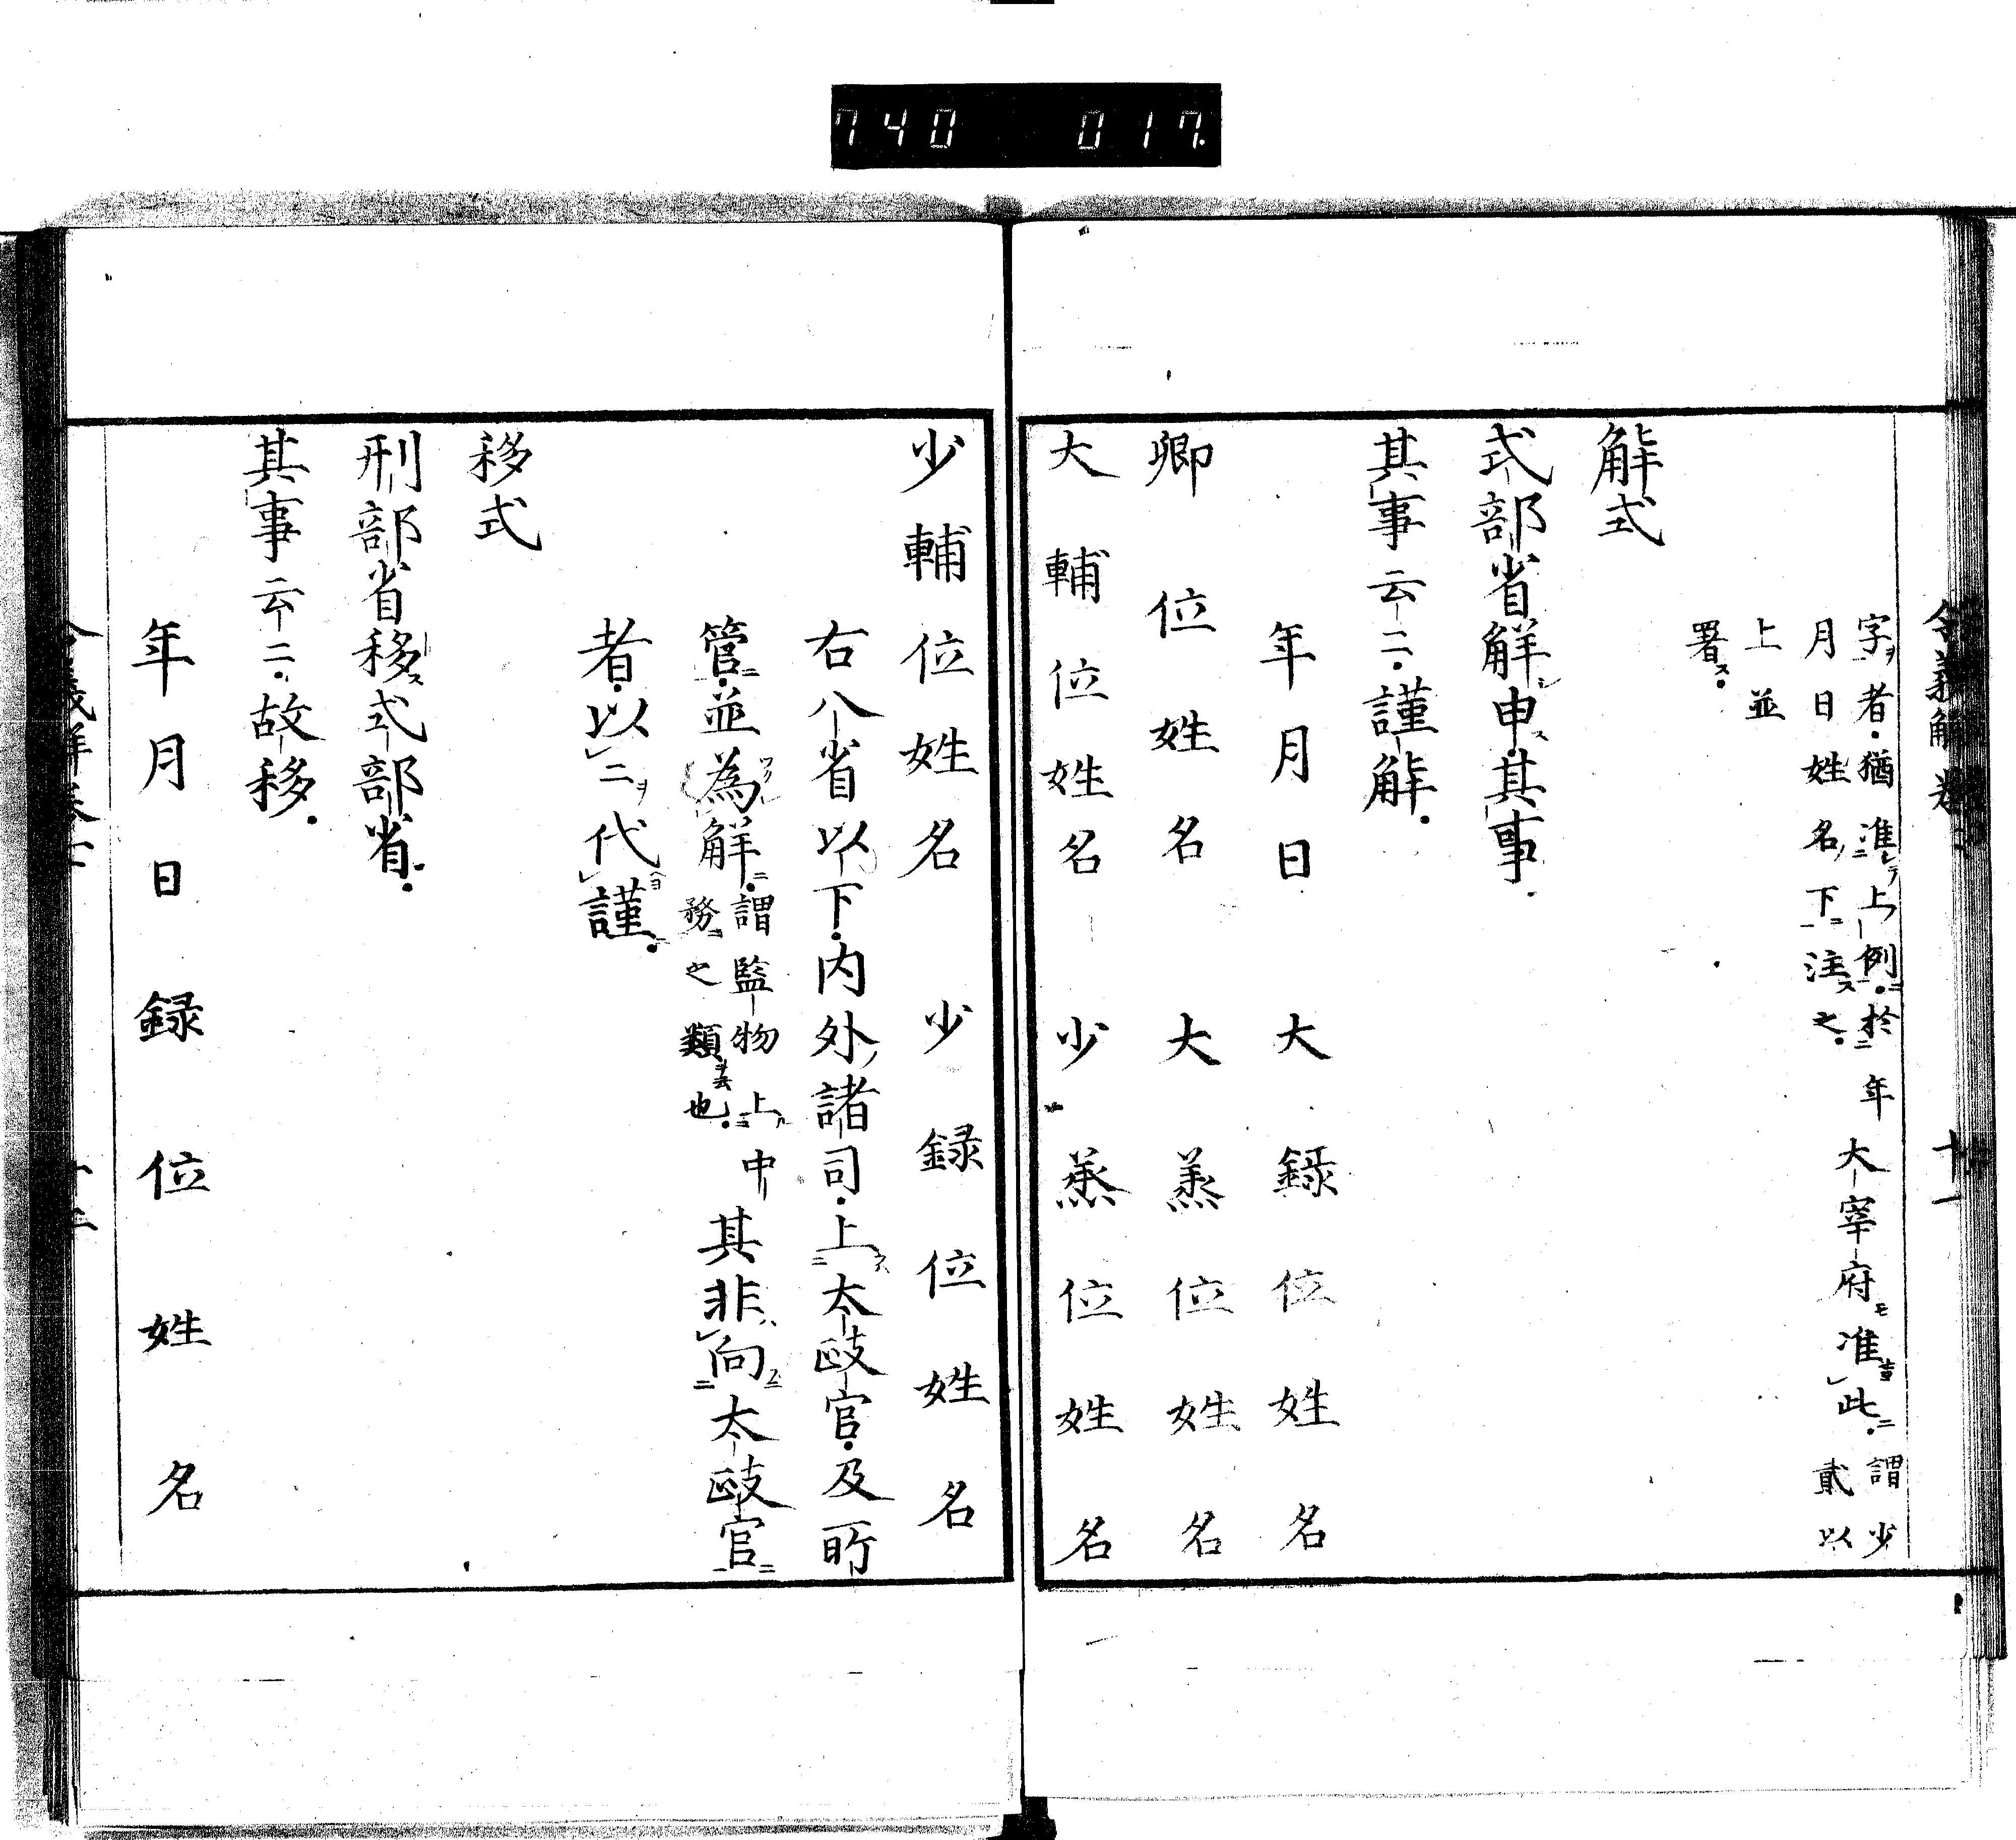 740 017
令義解卷 十一
字者猶准上例於年
月日姓名下注之
大宰府准此
謂少
貳以
上並
署
解式
式部省解申其事
其事云云謹解
年月日 大録位姓名
卿位姓名 大蒸位姓名
大輔位姓名 少蒸位姓名
少輔位姓名 少録位姓名
右八省以下内外諸司上太政官及所
管並為解
謂監物上中
務之類也
其非向太政官
者以云代謹
移式
刑部省移式部省
其事云云故移
年月日録位姓名